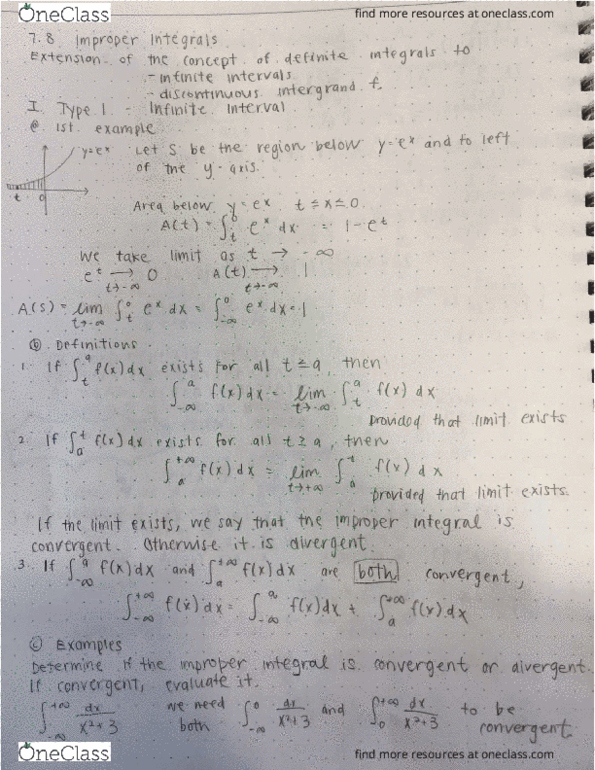 OneClass
find more resources at oneclass.com
7.8 Improper Integrals
Extension of the concept of definite integrals to
- infinite intervals
- discontinuous intergrand f.
I. Type 1 - Infinite Interval
@ 1st example
y=eˣ Let S be the region below y=eˣ and to left
of the y-axis.
t 0
Area below y=eˣ t≤x≤0
A(t) = ∫ₜ⁰ eˣ dx = 1-eᵗ
We take limit as t → -∞
eᵗ → 0 A(t) → 1
t→-∞ t→-∞
A(S) = lim ∫ₜ⁰ eˣ dx = ∫₋∞⁰ eˣ dx = 1
t→-∞
ⓑ Definitions
1. If ∫ₜᵃ f(x)dx exists for all t≤a, then
∫₋∞ᵃ f(x)dx = lim ∫ₜᵃ f(x) dx
t→-∞
provided that limit exists
2. If ∫ₐᵗ f(x)dx exists for all t≥a, then
∫ₐ⁺∞ f(x)dx = lim ∫ₐᵗ f(x) dx
t→+∞
provided that limit exists.
If the limit exists, we say that the improper integral is
convergent. Otherwise it is divergent.
3. If ∫₋∞ᵃ f(x)dx and ∫ₐ⁺∞ f(x)dx are both convergent,
∫₋∞⁺∞ f(x)dx = ∫₋∞ᵃ f(x)dx + ∫ₐ⁺∞ f(x)dx
ⓒ Examples
Determine if the improper integral is convergent or divergent.
If convergent, evaluate it.
∫₋∞⁺∞ dx/x²+3 we need both ∫₋∞⁰ dx/x²+3 and ∫₀⁺∞ dx/x²+3 to be convergent.
OneClass
find more resources at oneclass.com